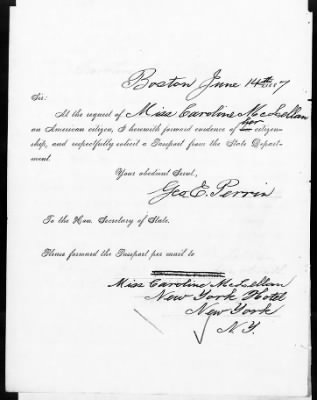 Boston June 14th 1887
Sir:
At the request of Miss Caroline McLellan
an American citizen, I herewith forward evidence of her citizen-
ship, and respectfully solicit a Passport from the State Depart-
ment.
Your obedient Servt,
Geo. E. Perrin
To the Hon. Secretary of State.
Please forward the Passport per mail to
Miss Caroline McLellan
New York Hotel
New York
N.Y.